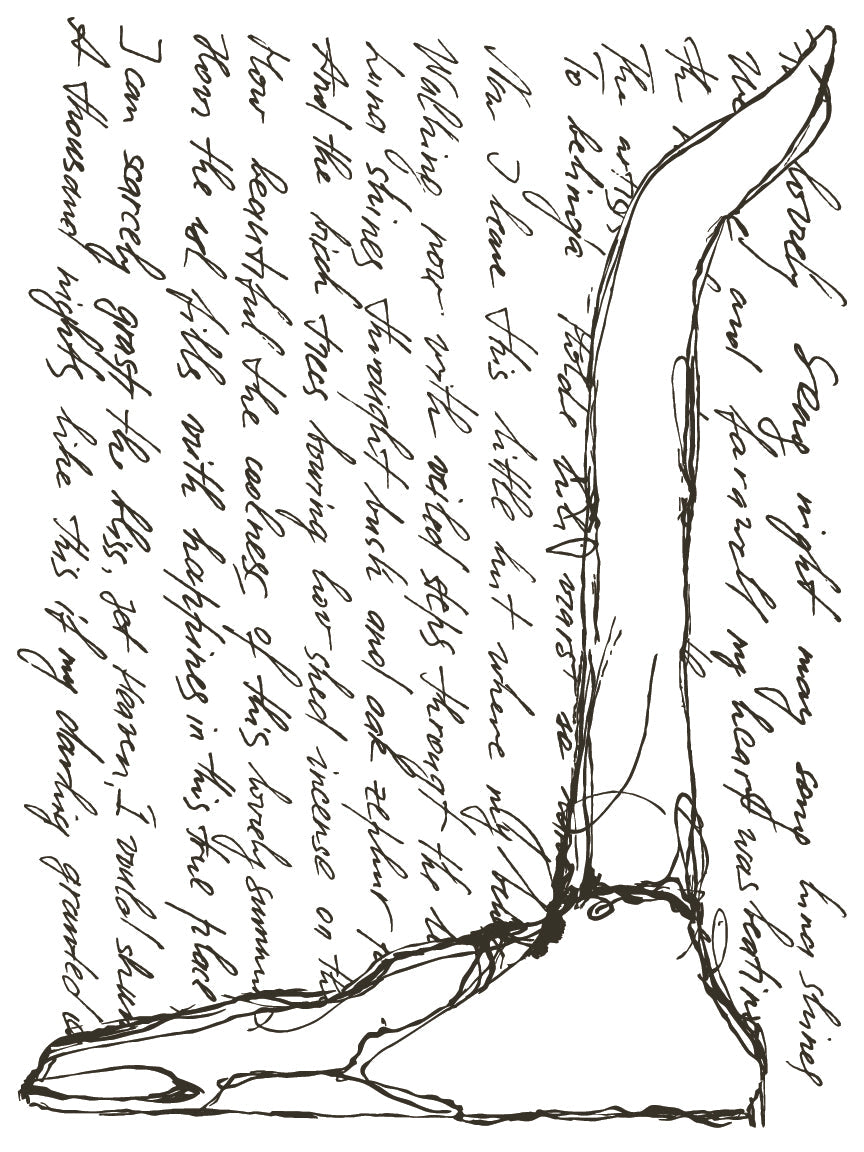 lovely Song night may song luna shines
and farwell my heart was beating
The
The artis
To those must
Now I leave this little hut where my
Walking now with veiled steps throught the
Luna shines throught bush and oak zephur
And the birch trees bowing low shed incense on th
How beautiful the coolness of this lovely summ
How the sol fills with happines in this true place
I can scarcely grasp the bliss, yet Heaven, I would shun
A thousand nights like this if my darling granted